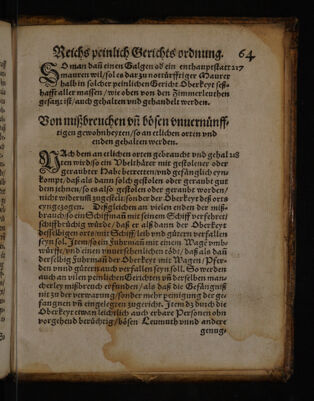 Reichs peinlich Gerichts ordnung. 64
SO man dañ einen Galgen od ein enthauptstatt 217
mauren wil/sol es dar zu notürfftiger Maurer
halb in solcher peinlichen Gericht Oberkeyt seß-
hafft aller massen/wie oben von den Zimmerleuthen
gesatzt ist/auch gehalten vnd gehandelt werden.
Von mißbreuchen vñ bösen vnuernünff-
tigen gewohnheyten/so an etlichen orten vnd
enden gehalten werden.
NAch dem an etlichen orten gebraucht vnd gehal 218
ten wird/so ein Vbelthäter mit gestolener oder
geraubter Habe betretten/vnd gefänglich eyn-
kompt/daß als dann solch gestolen oder geraubt gut
dem jehnen/so es also gestolen oder geraubt worden/
nicht widerumb zugestelt/sonder der Oberkeyt deß orts
eyngezogen. Deßgleichen an vielen enden der miß-
brauch/so ein Schiffmañ mit seinem Schiff verfehret/
schiffbrüchig würde/daß er alß dann der Oberkeyt
desselbigen orts mit Schiff/leib vnd gütern verfallen
seyn sol. Item/so ein Fuhrmañ mit einem Wagē vmb-
würffe/vnd einen vnuersehenlichen tödte/daß als dañ
derselbig Fuhrmañ der Oberkeyt mit Wagen/Pfer-
den vnd gütern auch verfallen seyn soll. So werden
auch an vilen peinlichen Gerichten vñ derselben man-
cherley mißbreuch erfunden/als daß die Gefängnüß
nit zu der verwarung/sonder mehr peinigung der ge-
fangnen vñ eingelegten zugericht. Item dz durch die
Oberkeyt etwan leichtlich auch erbare Personen ohn
vorgehend berüchtig/bösen Leumuth vnnd andere
genug-